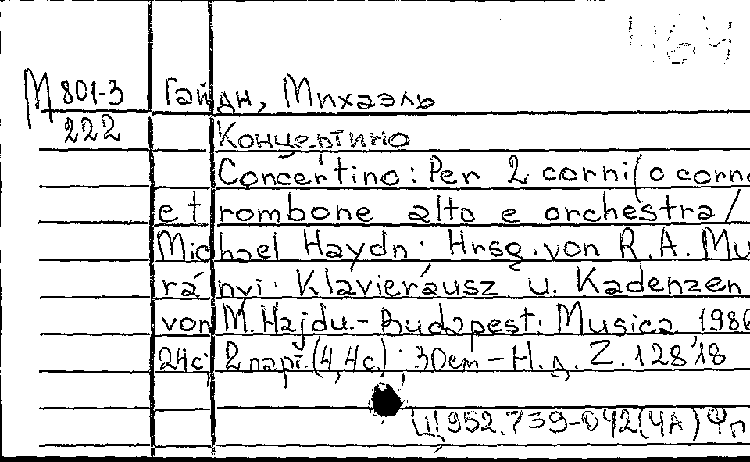 464
М 801-3 Гайдн, Михаэль
222 Концертино
Concertino: Per 2 corni (o corno
e trombone alto e orchestra /
Michael Haydn; Hrsg. von R.A. Mu
rányi; Klavierausz u. Kadenzen
von M. Hajdu.- Budapest: Musica, 1986
24с; 2 парт. (4,4с.); 30cm - Н.д. Z. 12818
Ц952.739-042(4А) Фп